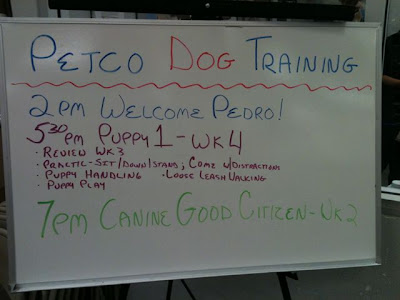 PETCO DOG TRAINING
2PM WELCOME PEDRO!
5:30 PM PUPPY 1 - WK4
· REVIEW WK3
· PRACTIC - SIT/DOWN/STAND; COME W/DISTRACTIONS
· PUPPY HANDLING · LOOSE LEASH WALKING
· PUPPY PLAY
7PM CANINE GOOD CITIZEN - WK2